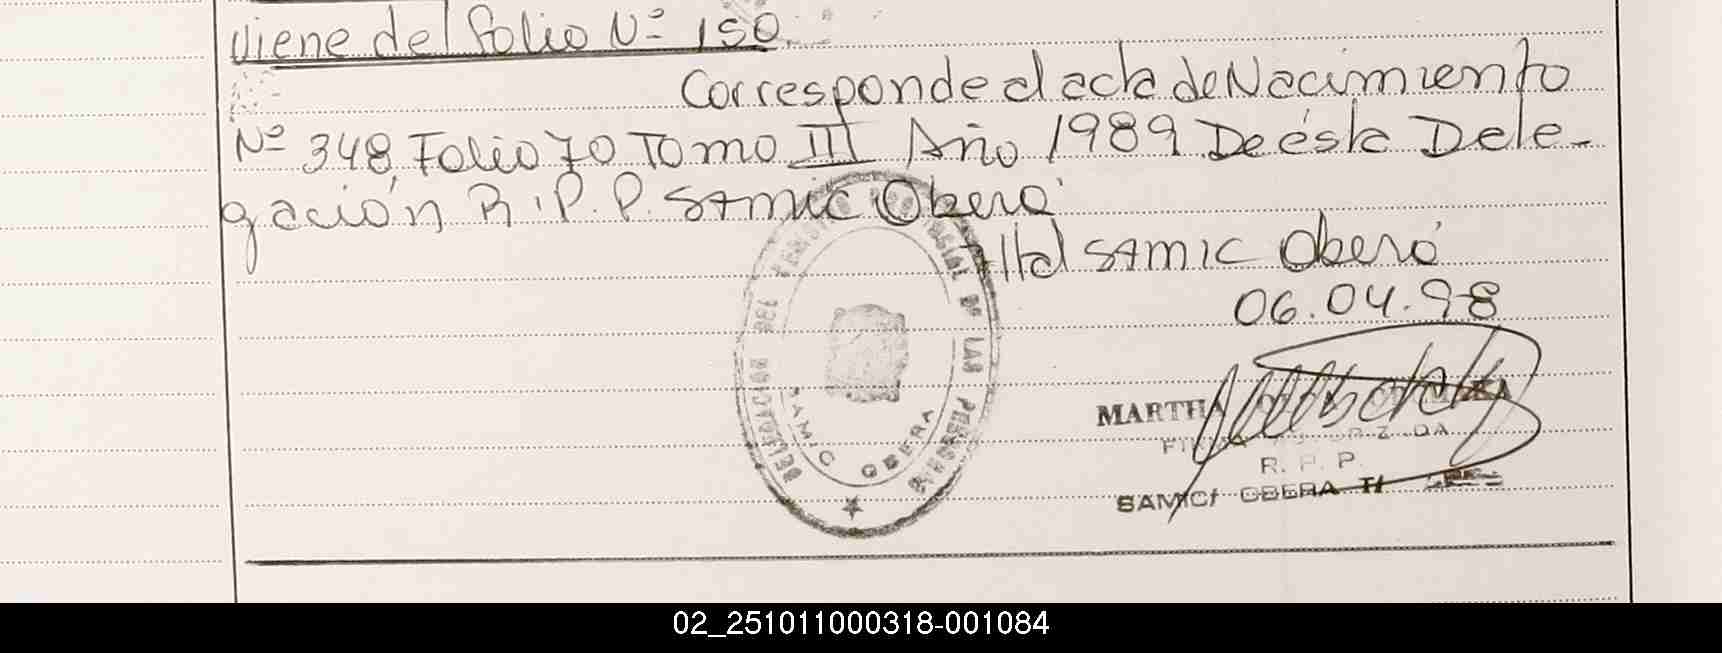 Viene del folio Nº 150
Corresponde al acta de Nacimiento
Nº 348, Folio 70 Tomo III Año 1989 De ésta Dele-
gación R.P.P. SAmic Oberá
SAmic Oberá
06.04.98
DELEGACION DEL REGISTRO PROVINCIAL DE LAS PERSONAS
SAMIC OBERA
MARTHA
R. P. P.
SAMIC OBERA
02_251011000318-001084